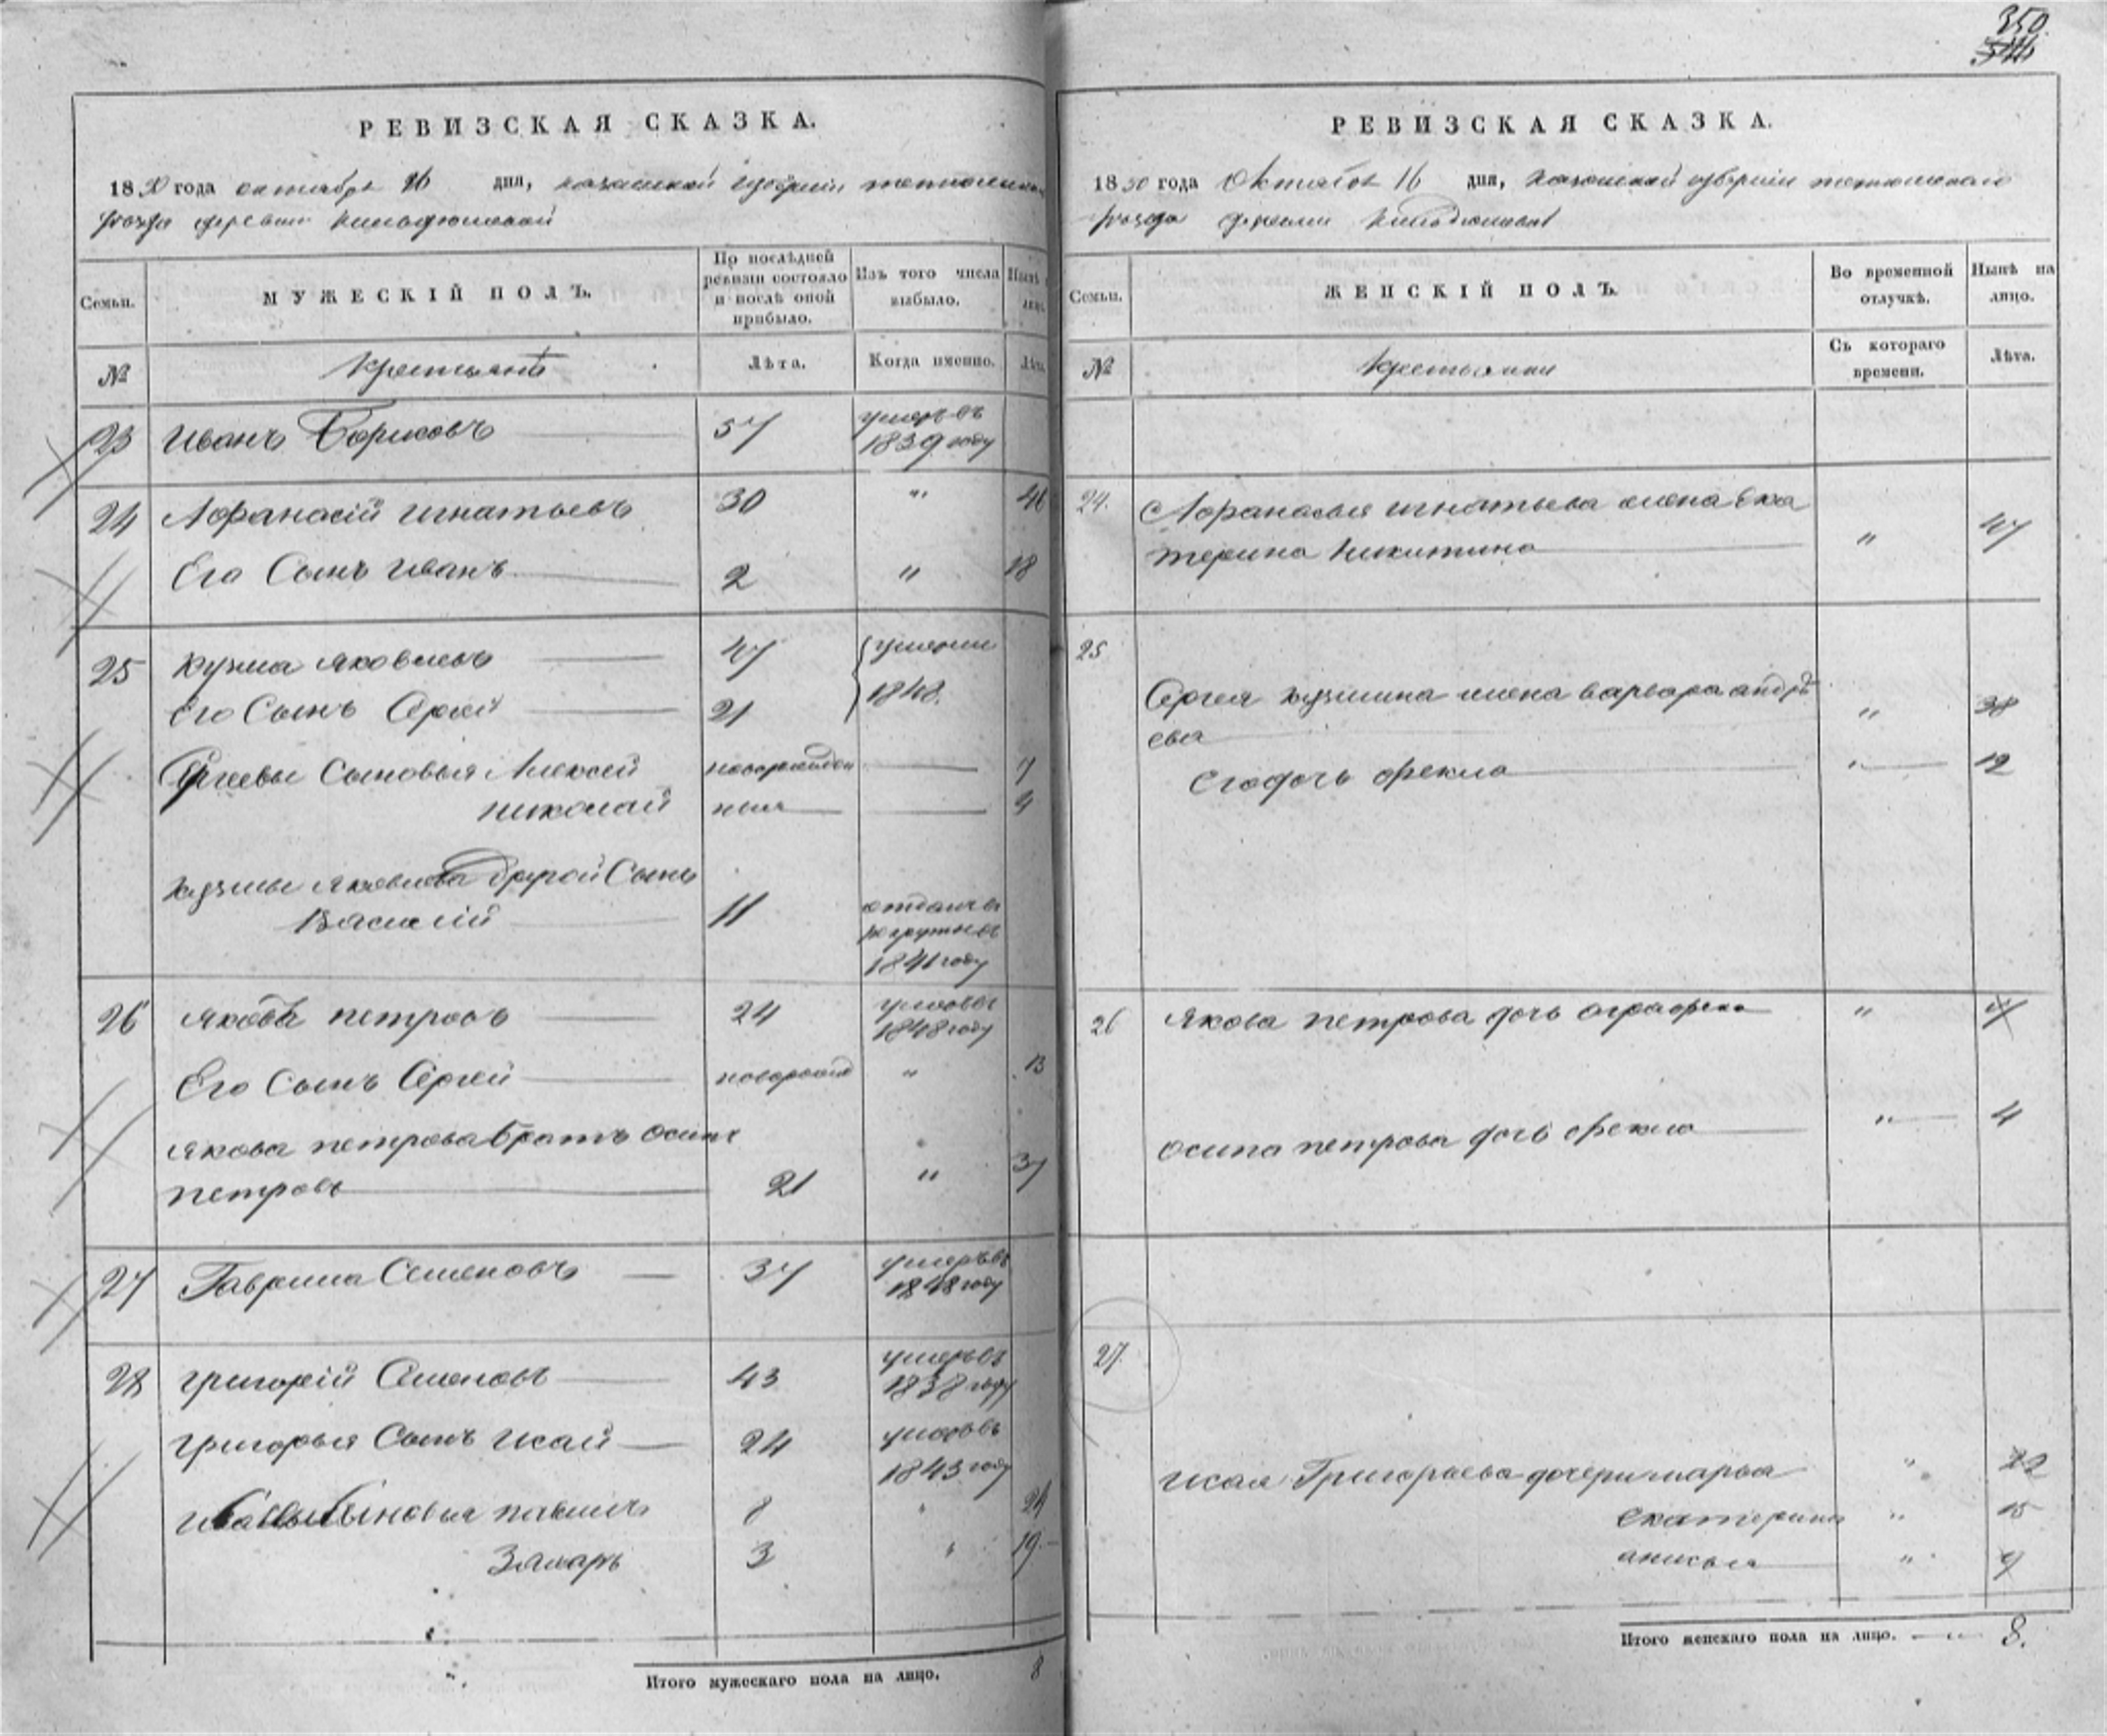 350
РЕВИЗСКАЯ СКАЗКА.
1850 года октября 16 дня, казанской губернии тетюшскаго
уезда деревни Кильдюшевой
Семьи.
МУЖЕСКІЙ ПОЛЪ.
По послѣдней ревизіи состояло и послѣ оной прибыло.
Изъ того числа выбыло.
Нынѣ
лицо
№
Крестьянъ
Лѣта.
Когда именно.
Лѣта
23 Иванъ Борисовъ 57 умеръ въ 1839 году
24 Афанасій Игнатьевъ 30 " 46
Его Сынъ Иванъ 2 " 18
25 Кузма Яковлевъ 47 умерли
Его Сынъ Сергей 21 1848.
Сергеевы Сыновья Алексей новорожден 7
Николай ныя 4
Кузмы Яковлева Другой Сынъ
Василій 11 отданъ въ рекруты въ 1841 году
26 Яковъ Петровъ 24 умеръ въ 1848 году
Его Сынъ Сергей новорожд " 13
Якова Петрова братъ Осипъ
Петровъ 21 " 37
27 Гаврила Семеновъ 37 умеръ въ 1848 году
28 Григорій Семеновъ 43 умеръ въ 1838 году
Григорья Сынъ Исай 24 умеръ въ 1843 году
8 24
Захаръ 3 19
Итого мужескаго пола на лицо. 8
РЕВИЗСКАЯ СКАЗКА.
1850 года Октября 16 дня, Казанской губерніи тетюшскаго
уезда деревни Кильдюшевой
Семьи.
ЖЕНСКІЙ ПОЛЪ.
Во временной отлучкѣ.
Нынѣ на лицо.
№
Крестьянки
Съ котораго времени.
Лѣта.
24. Афанасья Игнатьева жена Ека
терина Никитина " 47
25
Сергея Кузмина жена варвара андре
ева " 38
Егодочь Фекла " 12
26 Якова Петрова дочь Аграфена "
Осипа петрова дочь Фекла " 4
27.
Исая Григорьева дочери марья " 22
екатерина " 15
анисья " 9
Итого женскаго пола на лицо. 8.